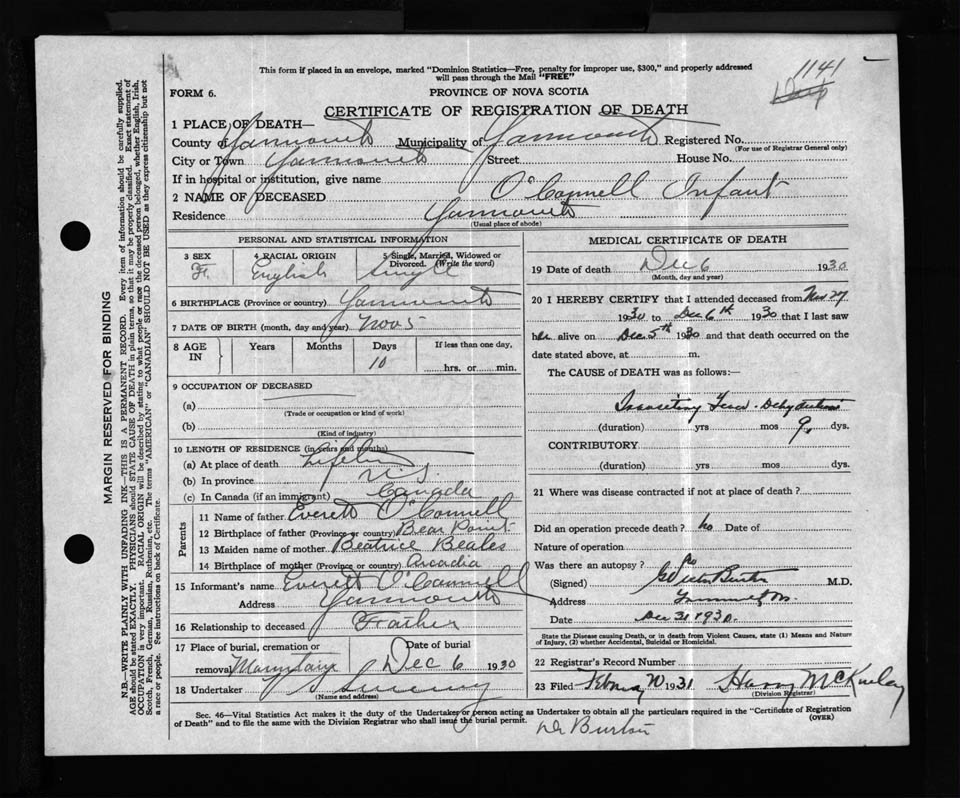 This form if placed in an envelope, marked "Dominion Statistics—Free, penalty for improper use, $300," and properly addressed
will pass through the Mail "FREE"
1141
FORM 6.
PROVINCE OF NOVA SCOTIA
CERTIFICATE OF REGISTRATION OF DEATH
1 PLACE OF DEATH—
County of Yarmouth Municipality of Yarmouth Registered No.
(For use of Registrar General only)
City or Town Yarmouth Street House No.
If in hospital or institution, give name
2 NAME OF DECEASED O'Connell Infant
Residence Yarmouth
(Usual place of abode)
PERSONAL AND STATISTICAL INFORMATION
3 SEX 4 RACIAL ORIGIN 5 Single, Married, Widowed or
Divorced. (Write the word)
F. English Single
6 BIRTHPLACE (Province or country) Yarmouth
7 DATE OF BIRTH (month, day and year) Nov 5
8 AGE IN Years Months Days If less than one day,
10 hrs. or min.
9 OCCUPATION OF DECEASED
(a)
(Trade or occupation or kind of work)
(b)
(Kind of industry)
10 LENGTH OF RESIDENCE (in years and months)
(a) At place of death Lifetime
(b) In province N.S.
(c) In Canada (if an immigrant) Canada
Parents
11 Name of father Everett O'Connell
12 Birthplace of father (Province or country) Bear Point
13 Maiden name of mother Beatrice Beales
14 Birthplace of mother (Province or country) Arcadia
15 Informant's name Everett O'Connell
Address Yarmouth
16 Relationship to deceased Father
17 Place of burial, cremation or Date of burial
removal Dec 6 1930
18 Undertaker Sweeny
(Name and address)
MEDICAL CERTIFICATE OF DEATH
19 Date of death Dec 6 1930
(Month, day and year)
20 I HEREBY CERTIFY that I attended deceased from Nov 27
1930 to Dec 6th 1930 that I last saw
her alive on Dec 5th 1930 and that death occurred on the
date stated above, at m.
The CAUSE of DEATH was as follows:—
Dehydration
(duration) yrs mos 9 dys.
CONTRIBUTORY
(duration) yrs mos dys.
21 Where was disease contracted if not at place of death?
Did an operation precede death? no Date of
Nature of operation
Was there an autopsy? no
(Signed) Burton M.D.
Address
Date Dec 31 1930.
State the Disease causing Death, or in death from Violent Causes, state (1) Means and Nature
of Injury, (2) whether Accidental, Suicidal or Homicidal.
22 Registrar's Record Number
23 Filed 1931 Harry McKinley
(Division Registrar)
Sec. 46—Vital Statistics Act makes it the duty of the Undertaker or person acting as Undertaker to obtain all the particulars required in the "Certificate of Registration
of Death" and to file the same with the Division Registrar who shall issue the burial permit.
(OVER)
Dr Burton
MARGIN RESERVED FOR BINDING
N.B.—WRITE PLAINLY WITH UNFADING INK—THIS IS A PERMANENT RECORD. Every item of information should be carefully supplied.
AGE should be stated EXACTLY. PHYSICIANS should STATE CAUSE OF DEATH in plain terms, so that it may be properly classified. Exact statement of
OCCUPATION is very important. RACIAL ORIGIN will be described by stating to what people or race the deceased person belonged, whether English, Irish,
Scotch, French, German, Russian, Ruthenian, etc. The terms "AMERICAN" or "CANADIAN" SHOULD NOT BE USED as they express citizenship but not
a race or people. See instructions on back of Certificate.